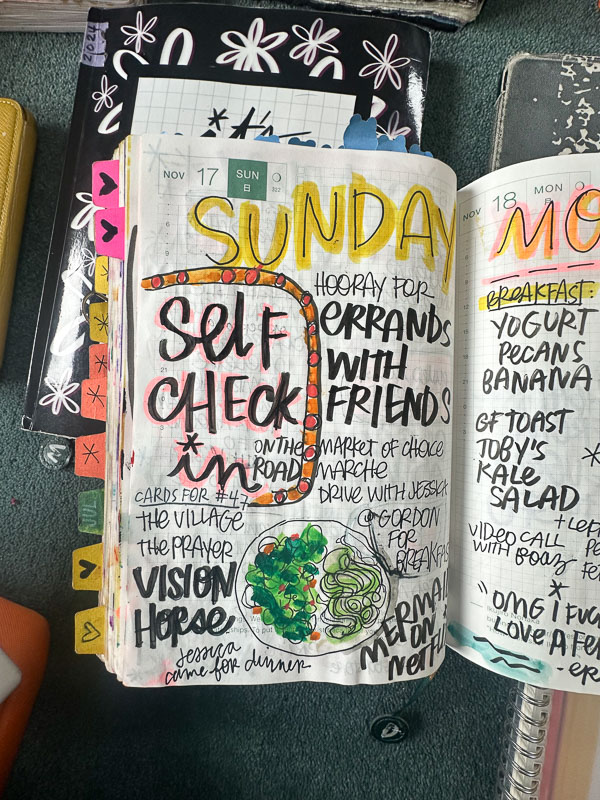 2024
it's
NOV 17 SUN
日
322
SUNDAY
SELF
CHECK
in
ON THE
ROAD
HOORAY FOR
ERRANDS
WITH
FRIENDS
MARKET OF CHOICE
MARCHE
DRIVE WITH JESSICA
GORDON
FOR
BREAKFAST
CARDS FOR #47
THE VILLAGE
THE PRAYER
VISION
HORSE
Jessica
came for dinner
MERMAID
ON
NETFLIX
JUL
NOV 18 MON
日
MO
BREAKFAST:
YOGURT
PECANS
BANANA
GF TOAST
TOBY'S
KALE
SALAD
VIDEO CALL
WITH BOAZ
"OMG I FUC
LOVE A FE
-ER